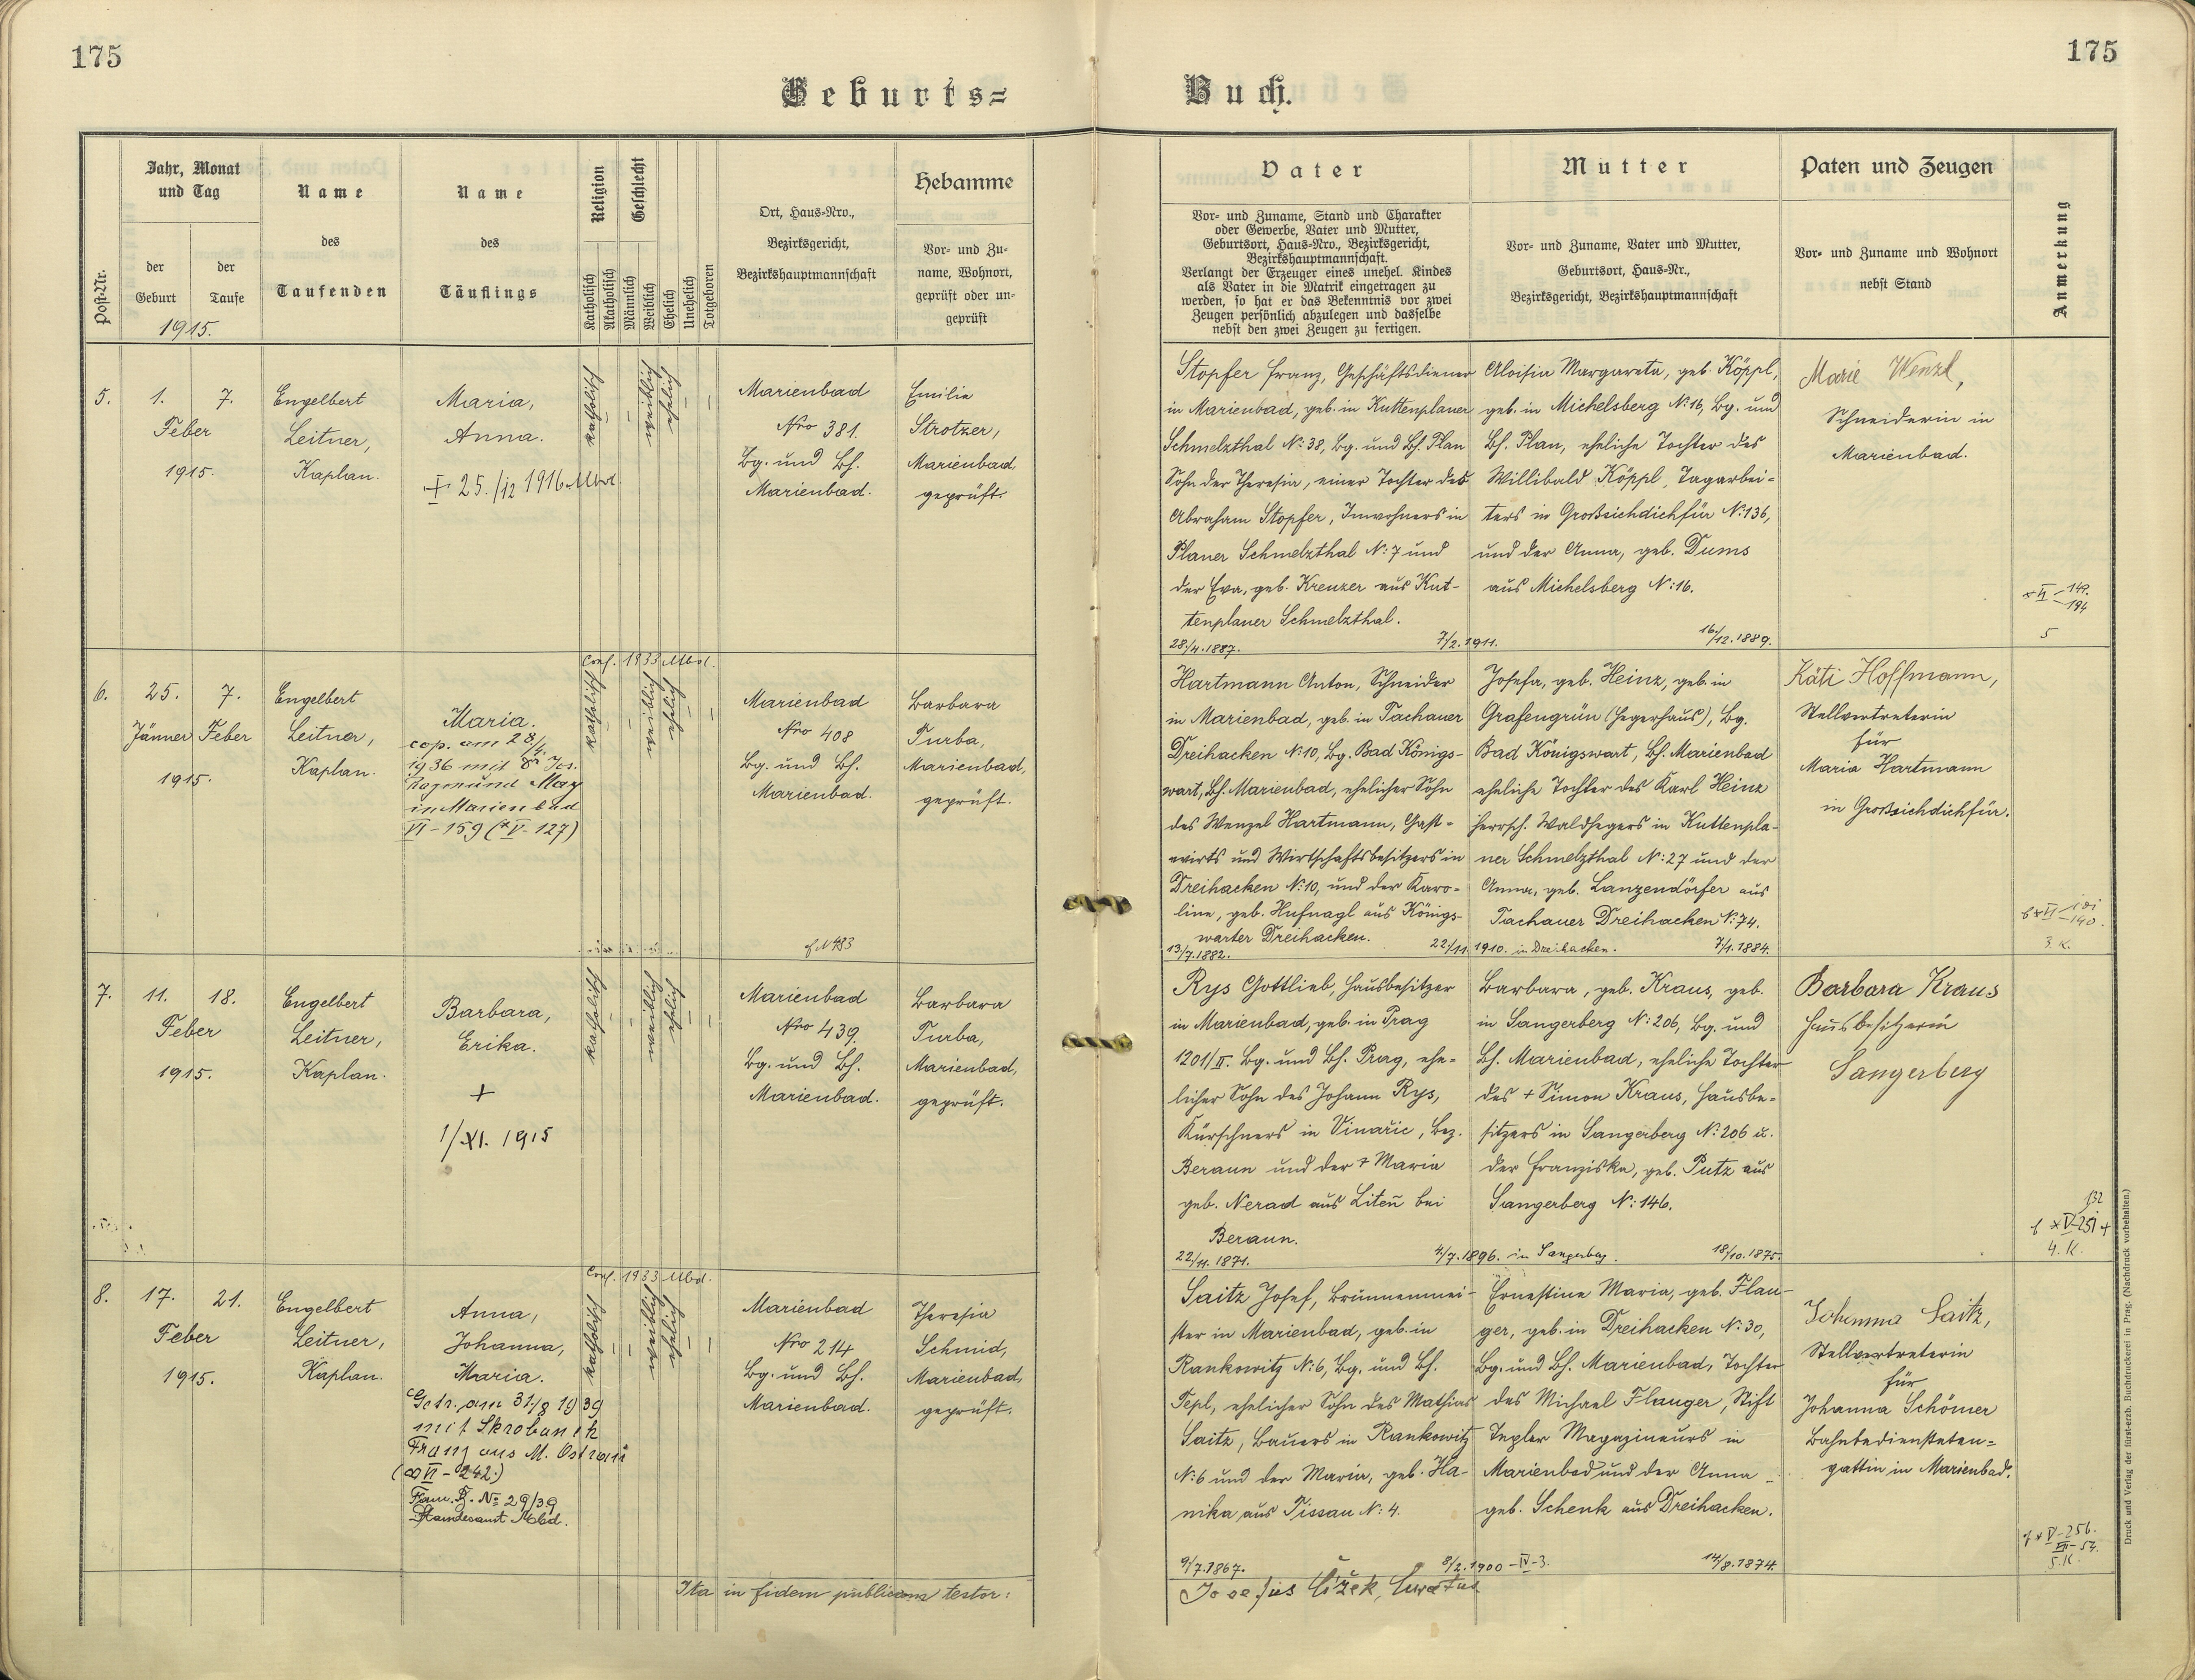 175
175
Geburts-
Buch.
Post-Nr.
Jahr, Monat
und Tag
der
Geburt
der
Taufe
1915.
Name
des
Taufenden
Name
des
Täuflings
Religion
Katholisch
Akatholisch
Geschlecht
Männlich
Weiblich
Ehelich
Unehelich
Totgeboren
Ort, Haus-Nro.,
Bezirksgericht,
Bezirkshauptmannschaft
Hebamme
Vor- und Zu-
name, Wohnort,
geprüft oder un-
geprüft
Vater
Vor- und Zuname, Stand und Charakter
oder Gewerbe, Vater und Mutter,
Geburtsort, Haus-Nro., Bezirksgericht,
Bezirkshauptmannschaft.
Verlangt der Erzeuger eines unehel. Kindes
als Vater in die Matrik eingetragen zu
werden, so hat er das Bekenntnis vor zwei
Zeugen persönlich abzulegen und dasselbe
nebst den zwei Zeugen zu fertigen.
Mutter
Vor- und Zuname, Vater und Mutter,
Geburtsort, Haus-Nr.,
Bezirksgericht, Bezirkshauptmannschaft
Paten und Zeugen
Vor- und Zuname und Wohnort
nebst Stand
Anmerkung
5.
1. 7.
Feber
1915.
Engelbert
Leitner,
Kaplan.
Maria,
Anna.
25./12 1916 Mbd.
katholisch
weiblich
ehelich
Marienbad
Nro 381.
Bg. und Bh.
Marienbad.
Emilie
Strotzer,
Marienbad,
geprüft.
Stopfer Franz, Geschäftsdiener
in Marienbad, geb. in Kuttenplaner
Schmelzthal N: 38, Bg. und Bh. Plan
Sohn der Theresia, einer Tochter des
Abraham Stopfer, Inwohners in
Planer Schmelzthal N: 7 und
der Eva, geb. Krenzer aus Kut-
tenplaner Schmelzthal.
28/4.1887.
7/2.1911.
Aloisia Margareta, geb. Köppl,
geb. in Michelsberg N: 16, Bg. und
Bh. Plan, eheliche Tochter des
Willibald Köppl, Tagarbei-
ters in Großsichdichfür N: 136,
und der Anna, geb. Dums
aus Michelsberg N: 16.
16/12.1889.
Marie Wenzl,
Schneiderin in
Marienbad.
5
6.
25. 7.
Jänner Feber
1915.
Engelbert
Leitner,
Kaplan.
Maria.
cop. am 28/4.
1936 mit
in Marienbad
VI-159 (*V-127)
Conf. 1933 Mbd.
katholisch
weiblich
ehelich
Marienbad
Nro 408
Bg. und Bh.
Marienbad.
Barbara
Turba,
Marienbad,
geprüft.
Hartmann Anton, Schneider
in Marienbad, geb. in Tachauer
Dreihacken N: 10, Bg. Bad Königs-
wart, Bh. Marienbad, ehelicher Sohn
des Wenzel Hartmann, Gast-
wirts und Wirtschaftsbesitzers in
Dreihacken N: 10, und der Karo-
line, geb. Hufnagl aus Königs-
warter Dreihacken.
13/7.1882.
22/11.1910. in Dreihacken.
Josefa, geb. Heinz, geb. in
Grafengrün (Hegerhaus), Bg.
Bad Königswart, Bh. Marienbad
eheliche Tochter des Karl Heinz
herrsch. Waldhegers in Kuttenpla-
ner Schmelzthal N: 27 und der
Anna, geb. Lanzendörfer aus
Tachauer Dreihacken N: 74.
7/1.1884.
Käti Hoffmann,
Stellvertreterin
für
Maria Hartmann
in Großsichdichfür.
3. K.
7.
11. 18.
Feber
1915.
Engelbert
Leitner,
Kaplan.
Barbara,
Erika.
+
1/XI. 1915
katholisch
weiblich
ehelich
Marienbad
Nro 439.
Bg. und Bh.
Marienbad.
Barbara
Turba,
Marienbad,
geprüft.
Rys Gottlieb, Hausbesitzer
in Marienbad, geb. in Prag
1201/II. Bg. und Bh. Prag, ehe-
licher Sohn des Johann Rys,
Kürschners in Vinařic, Bez.
Beraun und der + Maria
geb. Nerad aus Liteň bei
Beraun.
22/11.1871.
4/7.1896. in Sangerberg.
Barbara, geb. Kraus, geb.
in Sangerberg N: 206, Bg. und
Bh. Marienbad, eheliche Tochter
des + Simon Kraus, Hausbe-
sitzers in Sangerberg N: 206 u.
der Franziska, geb. Putz aus
Sangerberg N: 146.
18/10.1875.
Barbara Kraus
Hausbesitzerin
Sangerberg
4. K.
8.
17. 21.
Feber
1915.
Engelbert
Leitner,
Kaplan.
Anna,
Johanna,
Maria.
Getr. am 31/8 1939
mit Skrobanek
Franz aus M. Ostrau
(∞ VI-242)
Fam. B. No 29/39
Standesamt Mbd.
Conf. 1933 Mbd.
katholisch
weiblich
ehelich
Marienbad
Nro 214
Bg. und Bh.
Marienbad.
Theresia
Schmid,
Marienbad,
geprüft.
Saitz Josef, Brunnenmei-
ster in Marienbad, geb. in
Rankowitz N: 6, Bg. und Bh.
Tepl, ehelicher Sohn des Mathias
Saitz, Bauers in Rankowitz
N: 6 und der Maria, geb. Ha-
nika aus Pissau N: 4.
9/7.1867.
8/2.1900-IV-3.
Ernestine Maria, geb. Flau-
ger, geb. in Dreihacken N: 30,
Bg. und Bh. Marienbad, Tochter
des Michael Flauger, Stift
Tepler Magazineurs in
Marienbad und der Anna
geb. Schenk aus Dreihacken.
14/8.1874.
Johanna Saitz,
Stellvertreterin
für
Johanna Schömer
Bahnbediensteten-
gattin in Marienbad.
5. K.
Ita in fidem publicam testor:
Josefus Čížek, Curatus
Druck und Verlag der fürst-erzb. Buchdruckerei in Prag. (Nachdruck vorbehalten.)